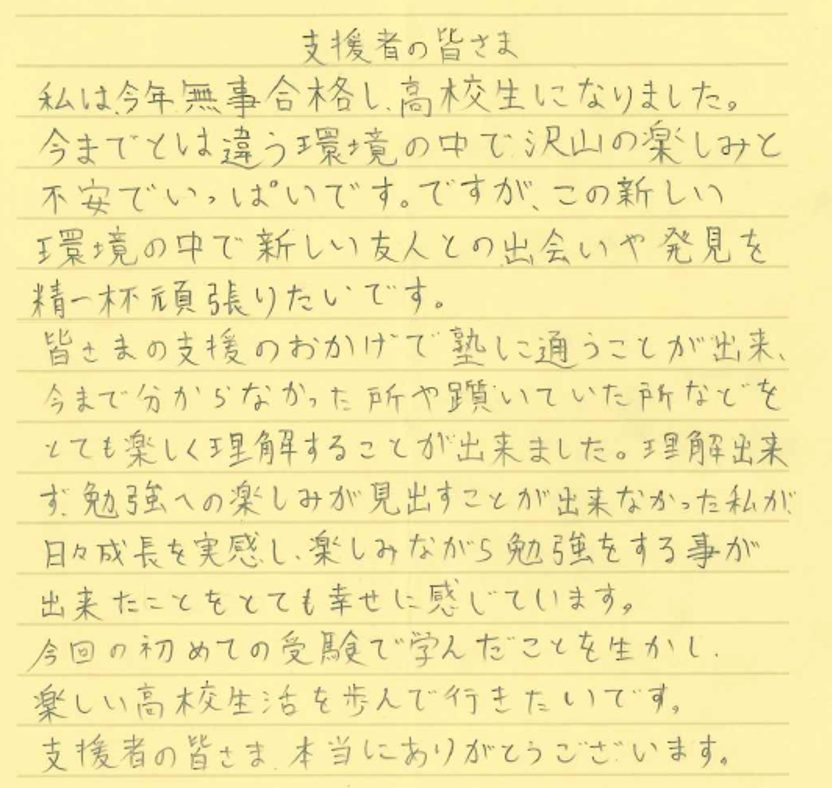 支援者の皆さま
私は、今年無事合格し、高校生になりました。
今までとは違う環境の中で、沢山の楽しみと
不安でいっぱいです。ですが、この新しい
環境の中で新しい友人との出会いや発見を
精一杯頑張りたいです。
皆さまの支援のおかげで塾に通うことが出来、
今まで分からなかった所や躓いていた所などを
とても楽しく理解することが出来ました。理解出来
ず、勉強への楽しみが見出すことが出来なかった私が
日々成長を実感し、楽しみながら勉強をする事が
出来たことをとても幸せに感じています。
今回の初めての受験で学んだことを生かし、
楽しい高校生活を歩んで行きたいです。
支援者の皆さま、本当にありがとうございます。